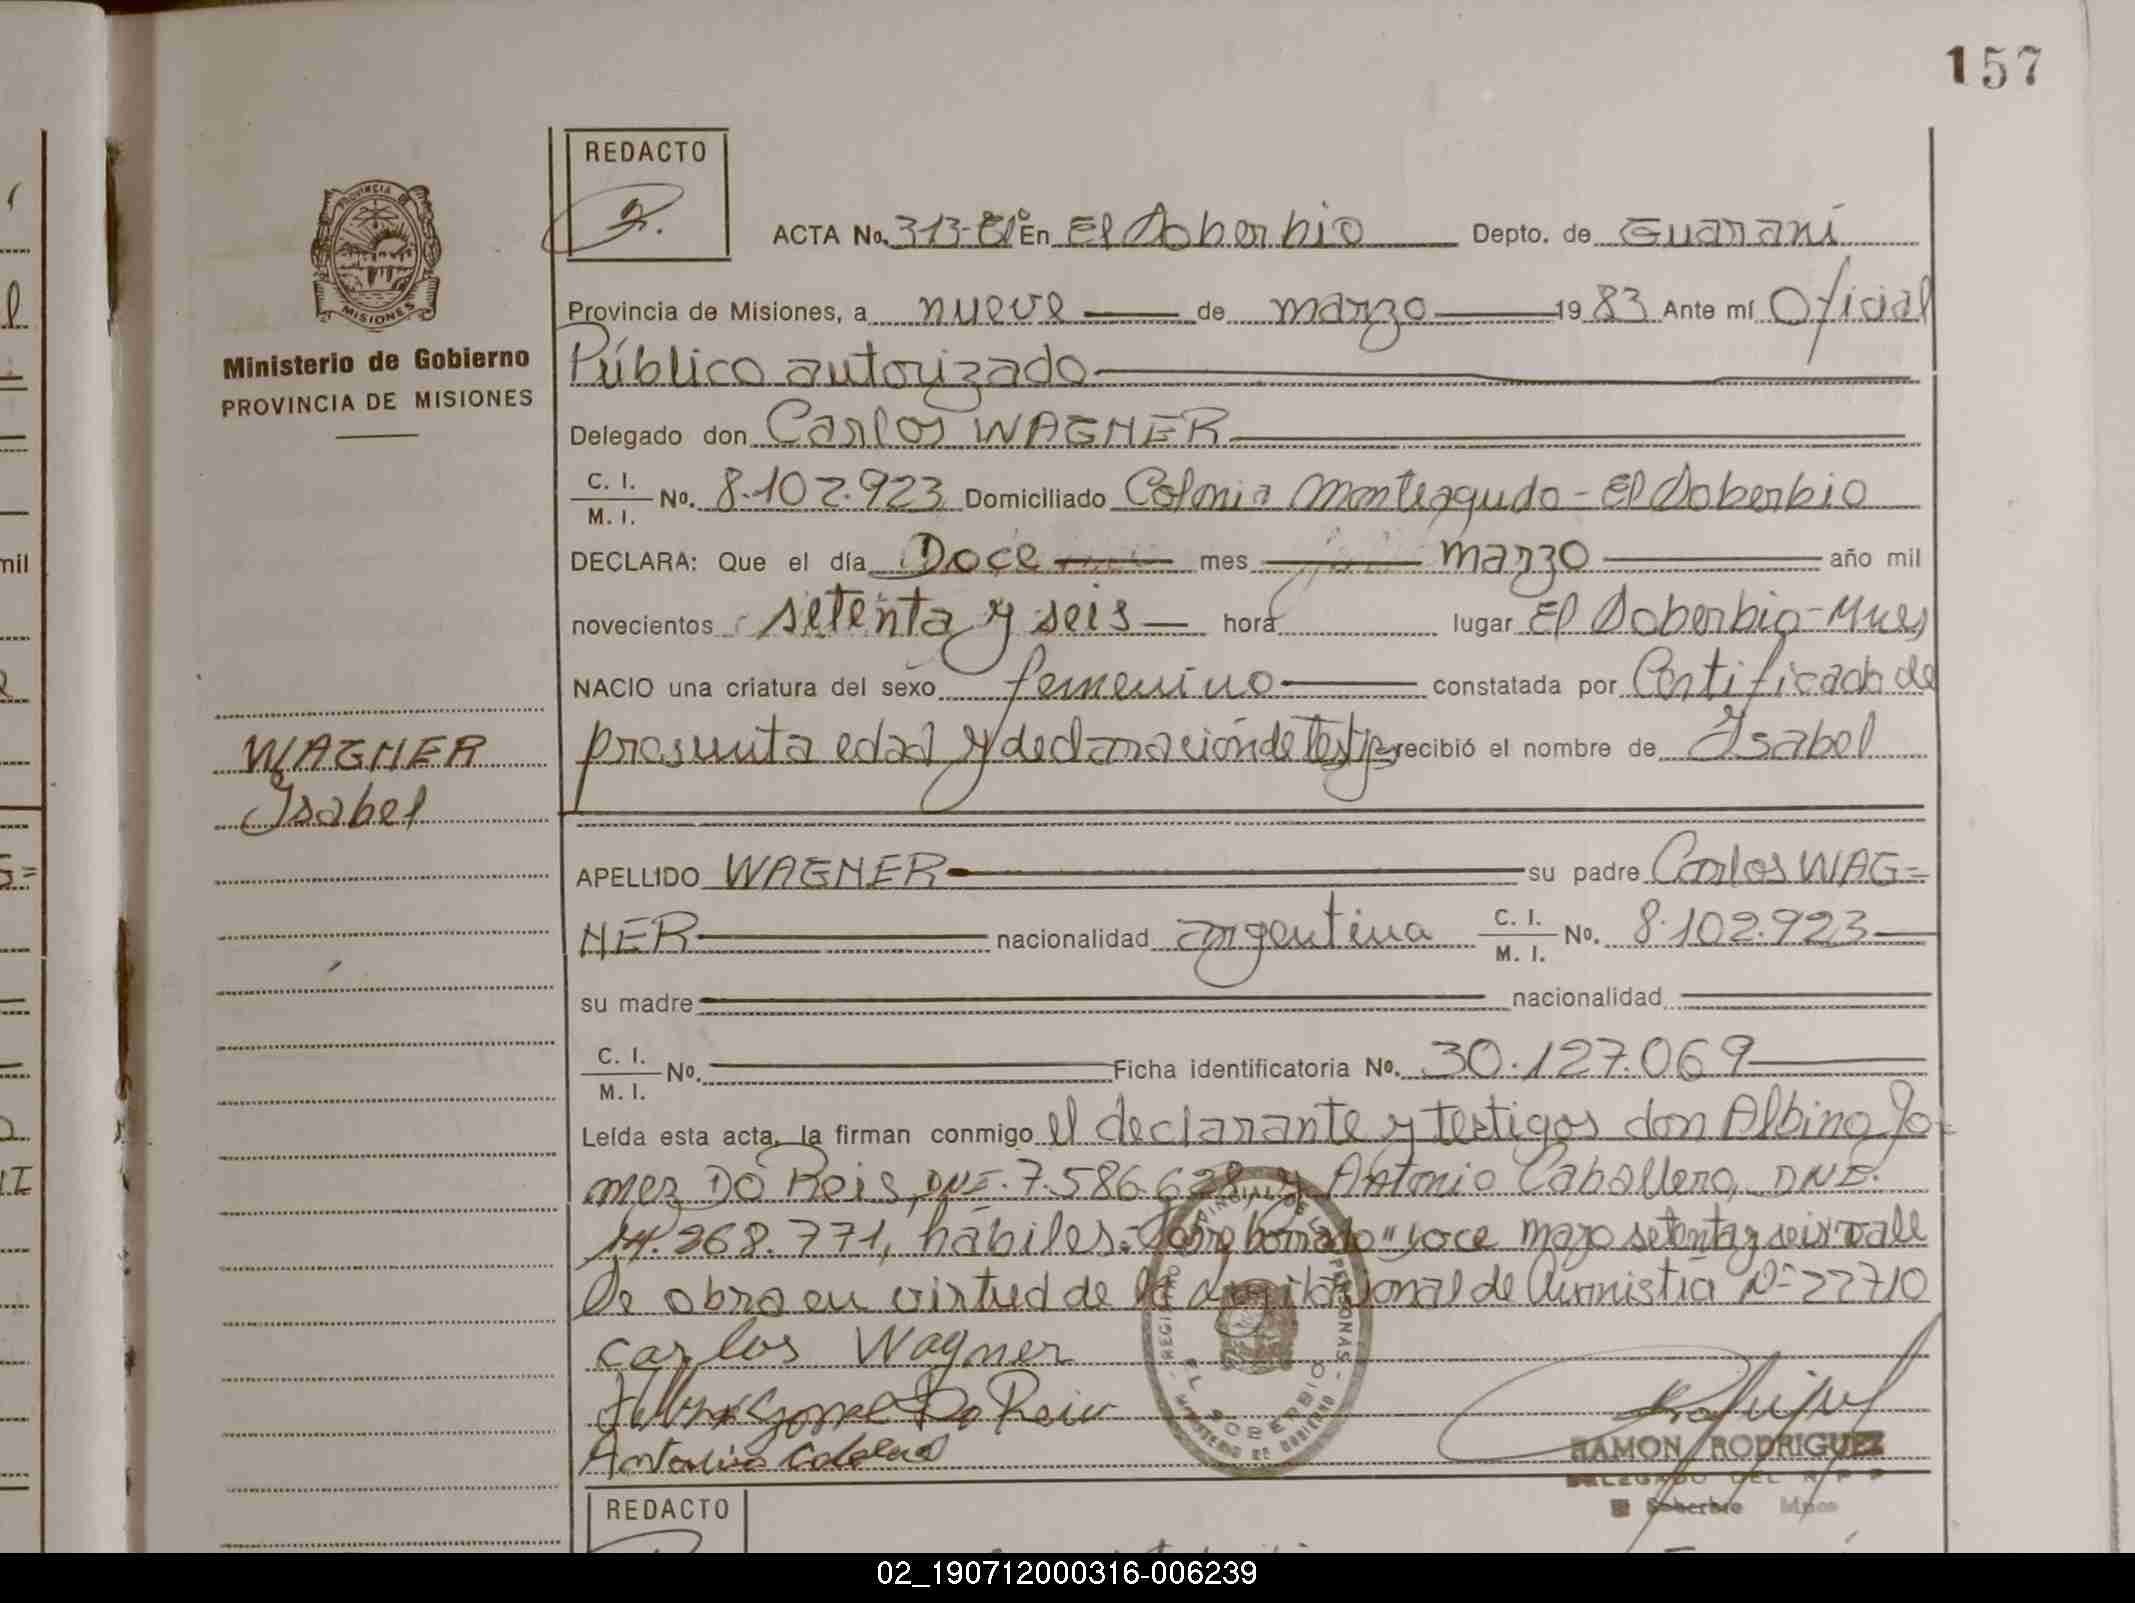 157
REDACTO
PROVINCIA
MISIONES
Ministerio de Gobierno
PROVINCIA DE MISIONES
ACTA No. 313- En El Soberbio Depto. de Guaraní
Provincia de Misiones, a nueve de marzo 1983 Ante mí Oficial
Público autorizado
Delegado don Carlos WAGNER
C. I. M. I. No. 8.102.923 Domiciliado Colonia Monteagudo - El Soberbio
DECLARA: Que el día Doce mes marzo año mil
novecientos setenta y seis hora lugar El Soberbio - Mnes
NACIO una criatura del sexo femenino constatada por Certificado de
presunta edad y declaración de Testgs recibió el nombre de Ysabel
WAGNER
Ysabel
APELLIDO WAGNER su padre Carlos WAG=
NER nacionalidad argentina C. I. M. I. No. 8.102.923
su madre nacionalidad
C. I. M. I. No. Ficha identificatoria No. 30.127.069
Leída esta acta, la firman conmigo el declarante y testigos don Albino Go
mez Do Reis, DNI. 7.586.628 y Antonio Caballero, DNI.
14.368.771, hábiles. Sobre borrado "Doce marzo setenta y seis" vale
Se obra en virtud de la de Amnistía Nº 22710
Carlos Wagner
Gomez Do Reis
Antonio
REGISTRO PROVINCIAL DE LAS PERSONAS
EL SOBERBIO
MINISTERIO DE GOBIERNO
RAMON RODRIGUEZ
DELEGADO DEL R P P
El Soberbio Mnes
REDACTO
02_190712000316-006239